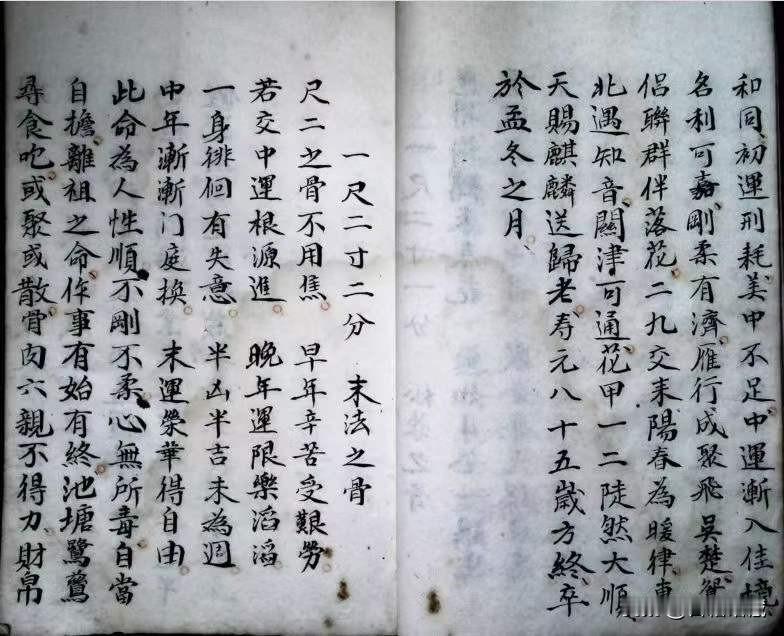 和同初運刑耗美中不足中運漸入佳境
名利可嘉剛柔有濟雁行成聚飛吳楚鴛
侶聯群伴落花二九交耒陽春為暖律東
北遇知音關津可通花甲一二陡然大順
天賜麒麟送歸老寿元八十五歲方終卒
於孟冬之月
一尺二寸二分 末法之骨
尺二之骨不用焦 早年辛苦受艱勞
若交中運根源進 晚年運限樂滔滔
一身徘徊有失意 半凶半吉未為週
中年漸漸门庭換 末運榮華得自由
此命為人性順不剛不柔心無所毒自當
自擔離祖之命作事有始有終池塘鷺鶿
尋食吃或聚或散骨肉六親不得力財帛